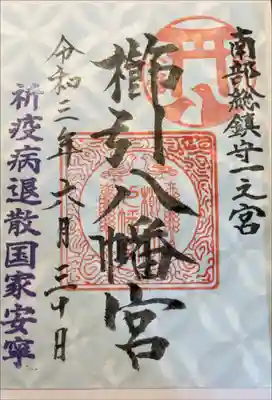 南部総鎮守一之宮
櫛引八幡宮
令和三年六月三十日
祈疫病退散国家安寧